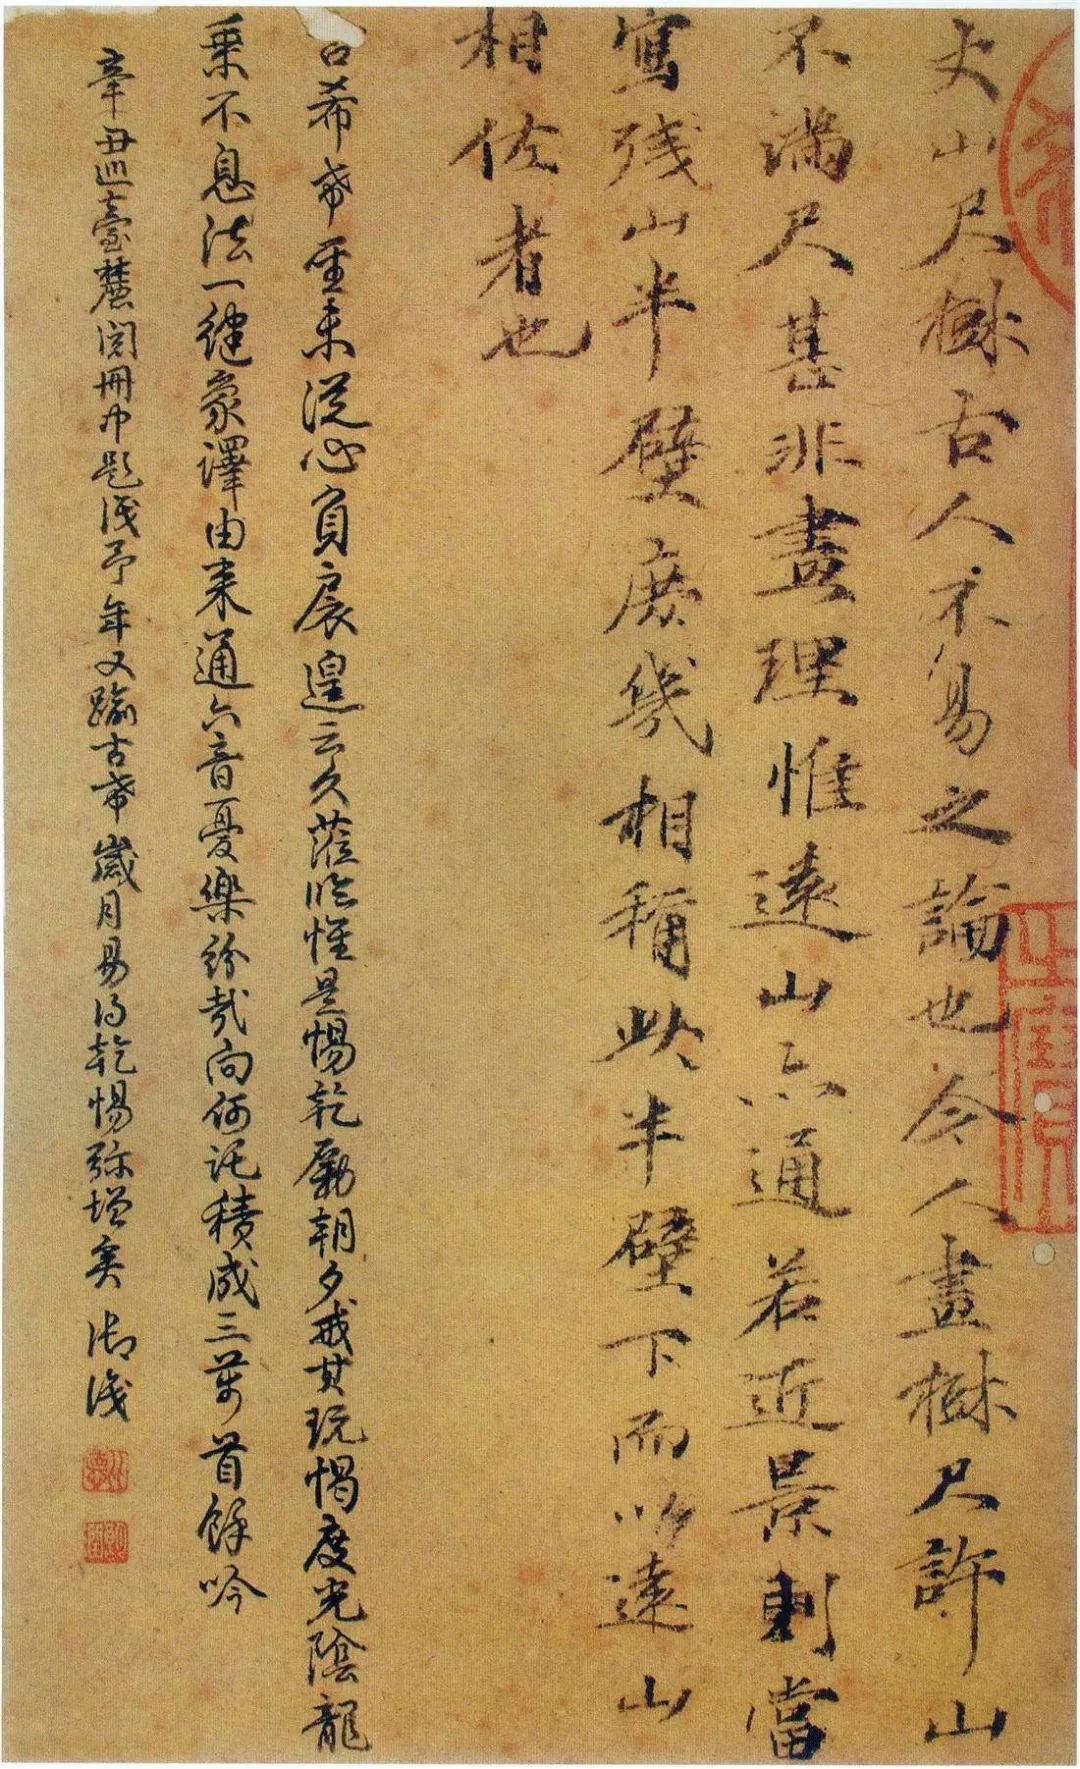 丈山尺樹古人不易之論也今人畫樹尺許山
不滿尺甚非畫理惟遠山亦通若近景則當
寫殘山半壁庶幾相稱此半壁下而以遠山
相佐者也
古希希聖未從心負扆遑云久蒞臨惟是惕乾勵朝夕戒其玩愒度光陰龍
乘不息法一健象澤由來通六音憂樂紛哉向何託積成三萬首餘吟
辛丑巡臺麓閱冊中題淺予年又踰古希歲月易得乾惕彌增矣 御識